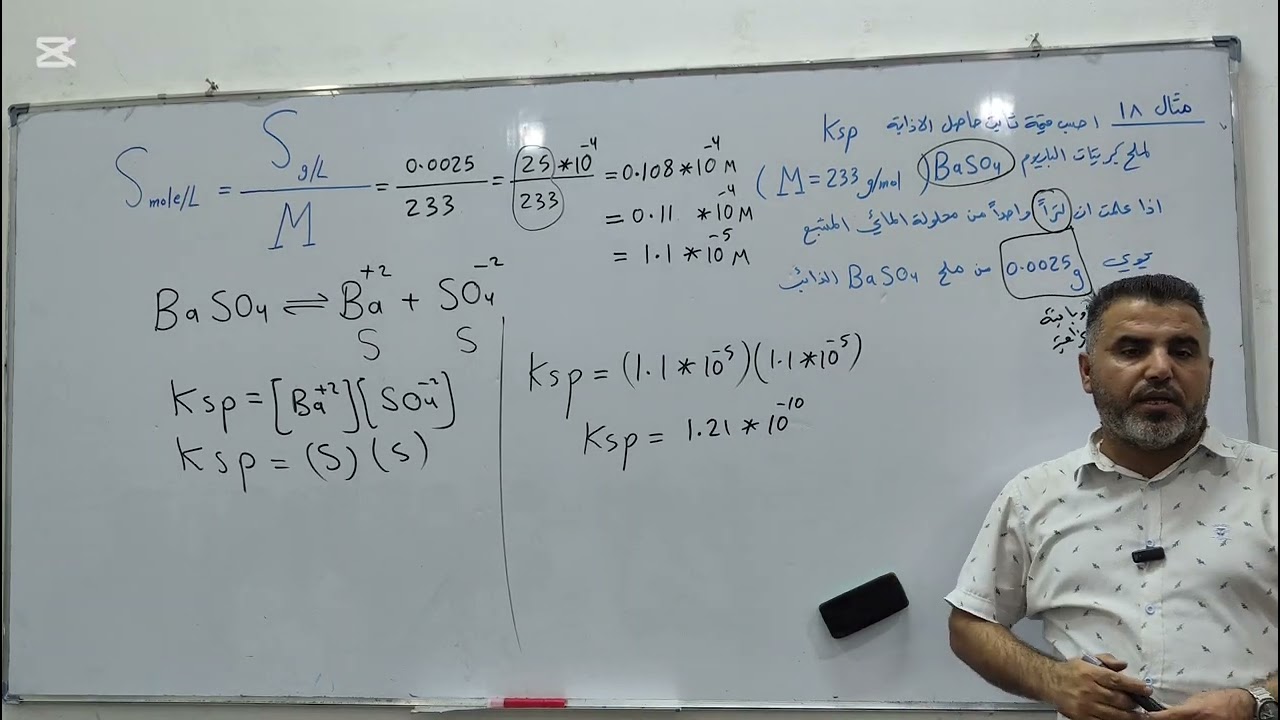 مثال ١٨ احسب قيمة ثابت حاصل الاذابة Ksp
لملح كبريتات الباريوم BaSO₄ (M = 233 g/mol)
اذا علمت ان لتراً واحداً من محلوله المائي المشبع
يحوي 0.0025g من ملح BaSO₄ الذائب
S mole/L = S g/L / M = 0.0025 / 233 = 25 * 10⁻⁴ / 233 = 0.108 * 10⁻⁴ M
= 0.11 * 10⁻⁴ M
= 1.1 * 10⁻⁵ M
BaSO₄ ⇌ Ba⁺² + SO₄⁻²
S S
Ksp = [Ba⁺²][SO₄⁻²]
Ksp = (S) (S)
Ksp = (1.1 * 10⁻⁵)(1.1 * 10⁻⁵)
Ksp = 1.21 * 10⁻¹⁰